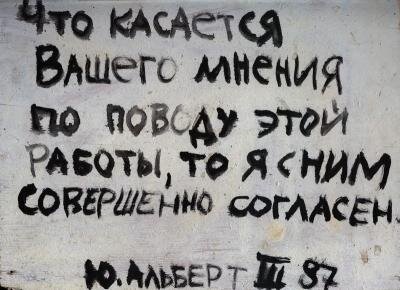 Что касается
Вашего мнения
по поводу этой
работы, то я с ним
совершенно согласен.
Ю. Альберт III 87